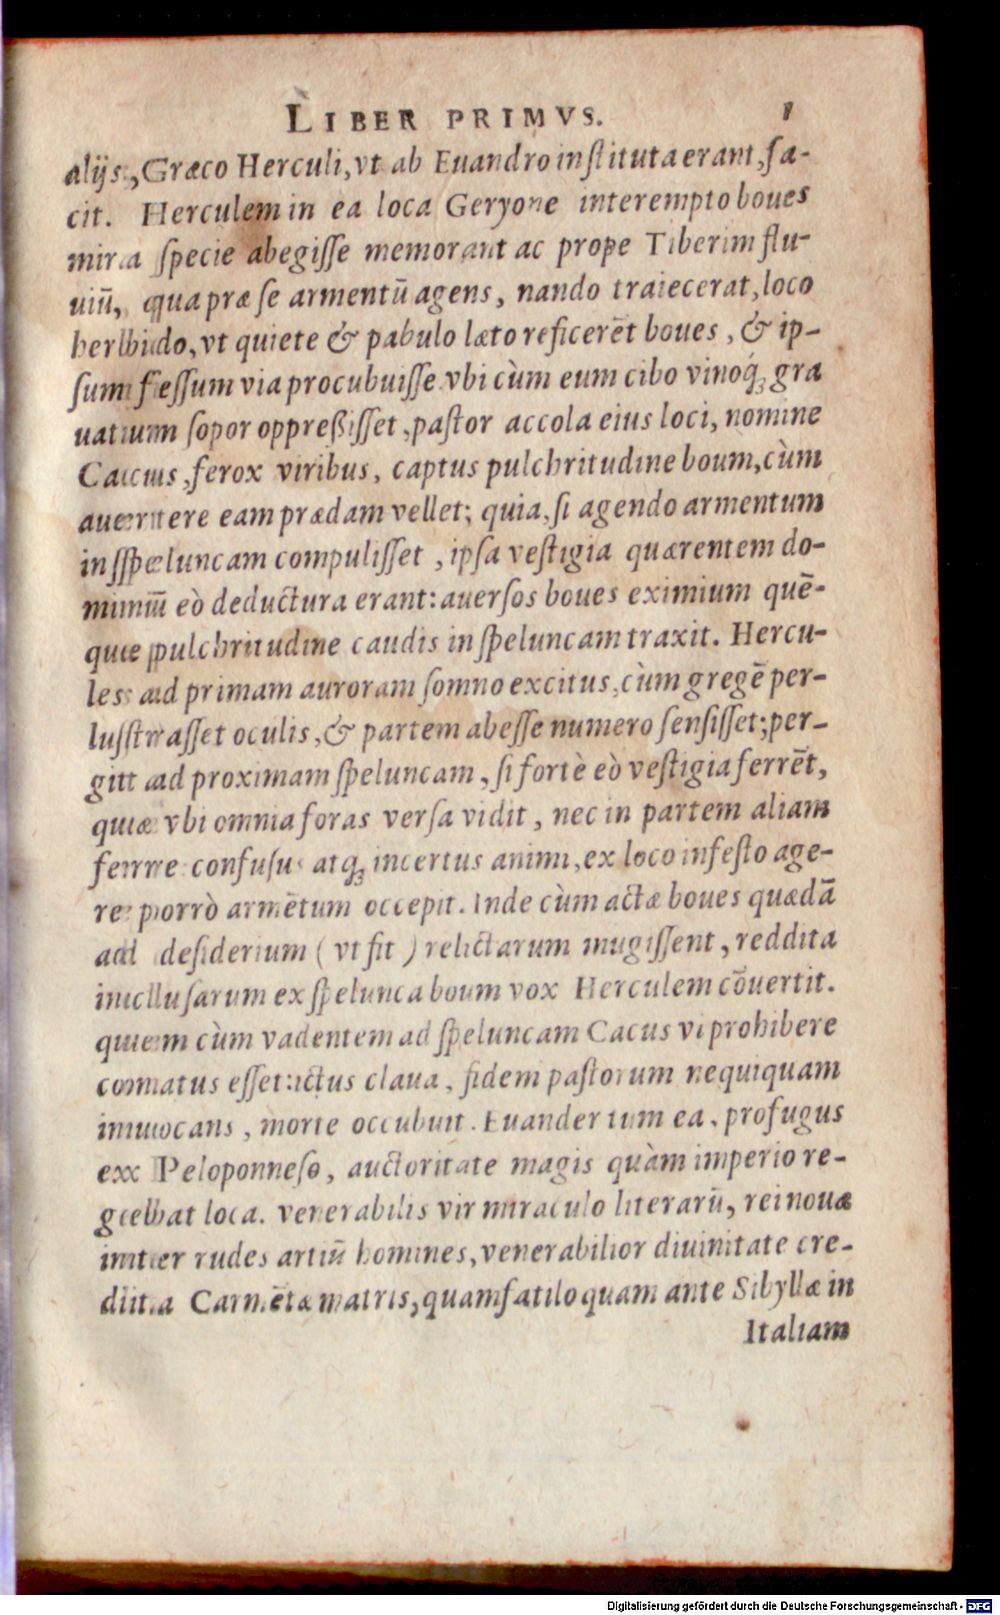 LIBER PRIMVS.
alijs, Græco Herculi, vt ab Euandro instituta erant, fa-
cit. Herculem in ea loca Geryone interempto boues
mira specie abegisse memorant ac prope Tiberim flu-
uiū, qua præ se armentū agens, nando traiecerat, loco
herbido, vt quiete & pabulo læto reficerēt boues, & ip-
sum fessum via procubuisse. vbi cùm eum cibo vinoq́; gra
uatum sopor oppreßisset, pastor accola eius loci, nomine
Cacus, ferox viribus, captus pulchritudine boum, cùm
auertere eam prædam vellet; quia, si agendo armentum
in speluncam compulisset, ipsa vestigia quærentem do-
minū eò deductura erant: auersos boues eximium quē-
que pulchritudine caudis in speluncam traxit. Hercu-
les ad primam auroram somno excitus, cùm gregē per-
lustrasset oculis, & partem abesse numero sensisset; per-
git ad proximam speluncam, si fortè eò vestigia ferrēt,
quæ vbi omnia foras versa vidit, nec in partem aliam
ferre: confusus atq; incertus animi, ex loco infesto age-
re porrò armētum occepit. Inde cùm actæ boues quædā
ad desiderium (vt fit) relictarum mugissent, reddita
inclusarum ex spelunca boum vox Herculem cōuertit.
quem cùm vadentem ad speluncam Cacus vi prohibere
conatus esset: ictus claua, fidem pastorum nequiquam
inuocans, morte occubuit. Euander tum ea, profugus
ex Peloponneso, auctoritate magis quàm imperio re-
gebat loca. venerabilis vir miraculo literarū, rei nouæ
inter rudes artiū homines, venerabilior diuinitate cre-
dita Carmētæ matris, quam fatiloquam ante Sibyllæ in
Italiam
Digitalisierung gefördert durch die Deutsche Forschungsgemeinschaft - DFG